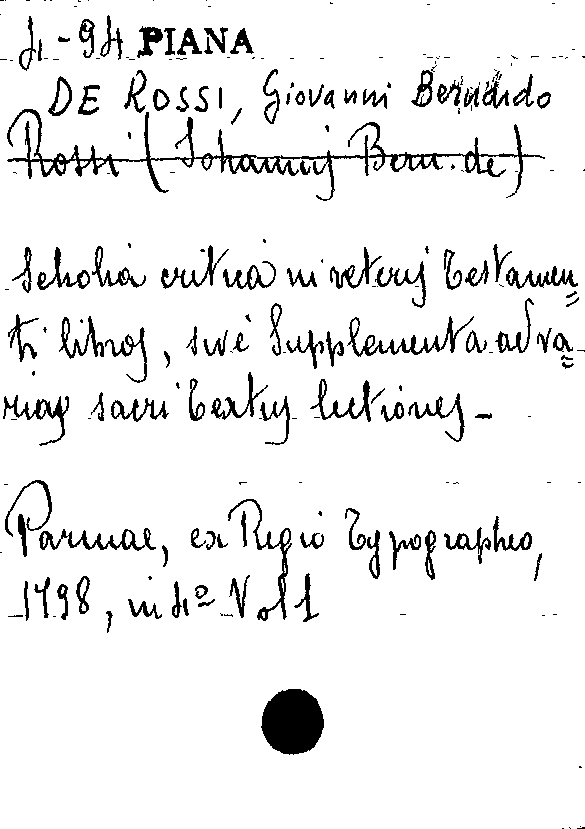 4-94 PIANA
DE ROSSI, Giovanni Bernardo
Rossi (Johannis Bern. de)
Scholia critica in veteris Testamen=
ti libros, sive Supplementa ad va=
rias sacri textus lectiones -
Parmae, ex Regio Typographeo,
1798, in 4º Vol 1